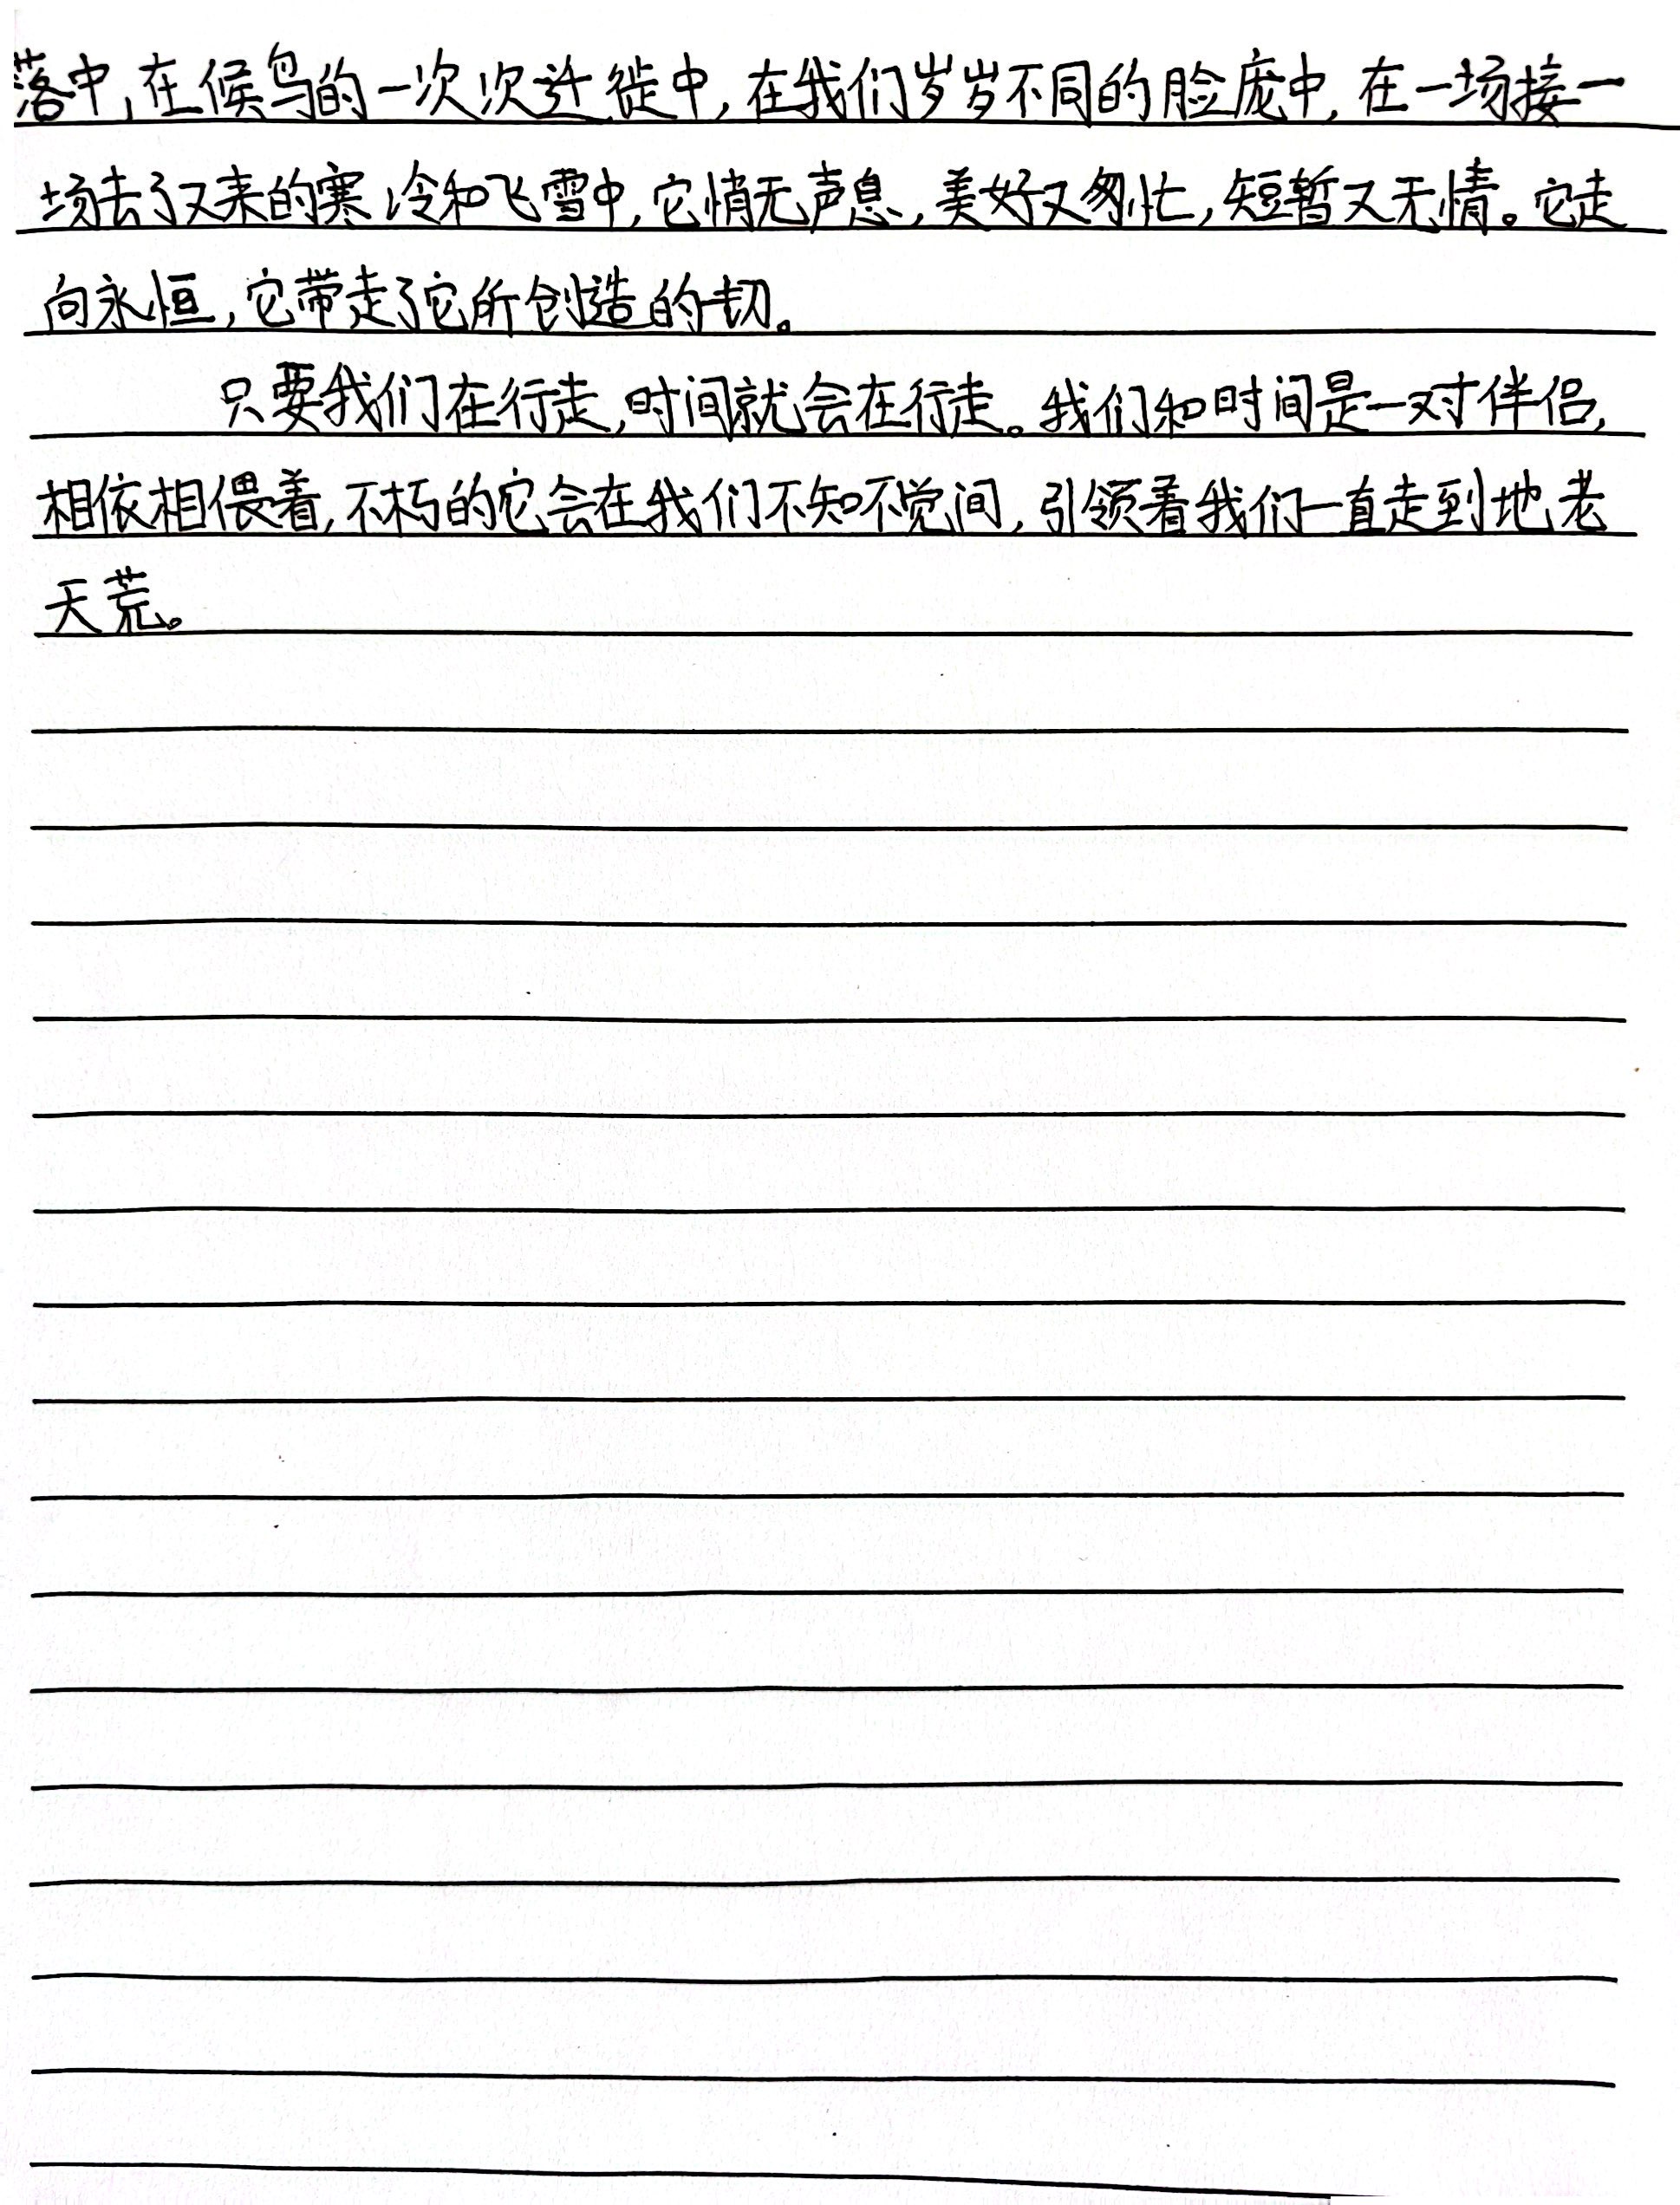 落中,在候鸟的一次次迁徙中,在我们岁岁不同的脸庞中,在一场接一
场去了又来的寒冷和飞雪中,它悄无声息,美好又匆忙,短暂又无情。它走
向永恒,它带走了它所创造的一切。
只要我们在行走,时间就会在行走。我们和时间是一对伴侣,
相依相偎着,不朽的它会在我们不知不觉间,引领着我们一直走到地老
天荒。